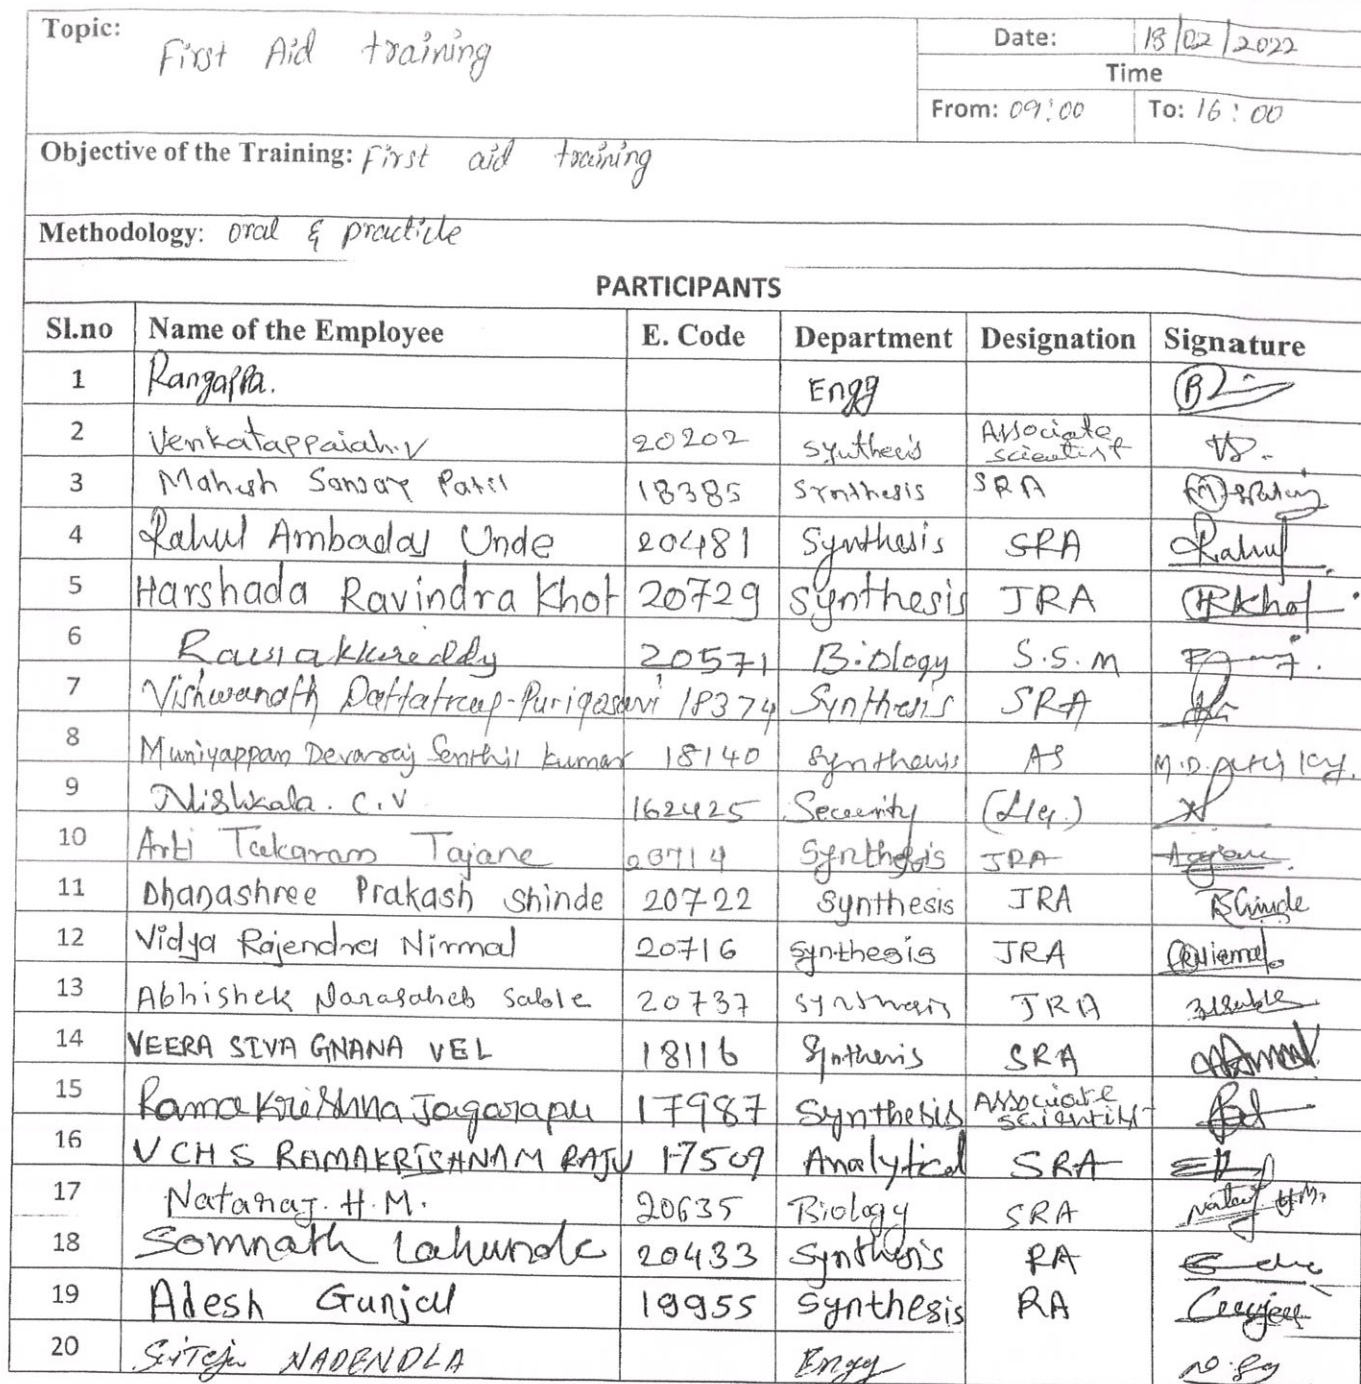 Topic: First Aid training
Date: 18/02/2022
Time
From: 09:00 To: 16:00
Objective of the Training: First aid training
Methodology: oral & practicle
PARTICIPANTS
Sl.no Name of the Employee E. Code Department Designation Signature
1 Rangappa. Engg
2 Venkatappaiah.V 20202 Synthesis Associate Scientist
3 Mahesh Patil 18385 Synthesis SRA
4 Rahul Ambadas Unde 20481 Synthesis SRA Rahul
5 Harshada Ravindra Khot 20729 Synthesis JRA HRKhot
6 20571 Biology S.S.M
7 Vishwanath 18374 Synthesis SRA
8 Muniyappan Devaraj Senthil kumar 18140 Synthesis AS
9 Nishkala. C.V 162425 Security
10 Arti Tukaram Tajane 20714 Synthesis JRA
11 Dhanashree Prakash Shinde 20722 Synthesis JRA
12 Vidya Rajendra Nirmal 20716 Synthesis JRA
13 Abhishek Sable 20737 Synthesis JRA
14 VEERA SIVA GNANA VEL 18116 Synthesis SRA
15 Ramakrishna Jagarapu 17987 Synthesis Associate Scientist
16 V CH S RAMAKRISHNAM RAJU 17509 Analytical SRA
17 Nataraj. H.M. 20635 Biology SRA
18 Somnath 20433 Synthesis RA
19 Adesh Gunjal 19955 Synthesis RA
20 NADENDLA Engg